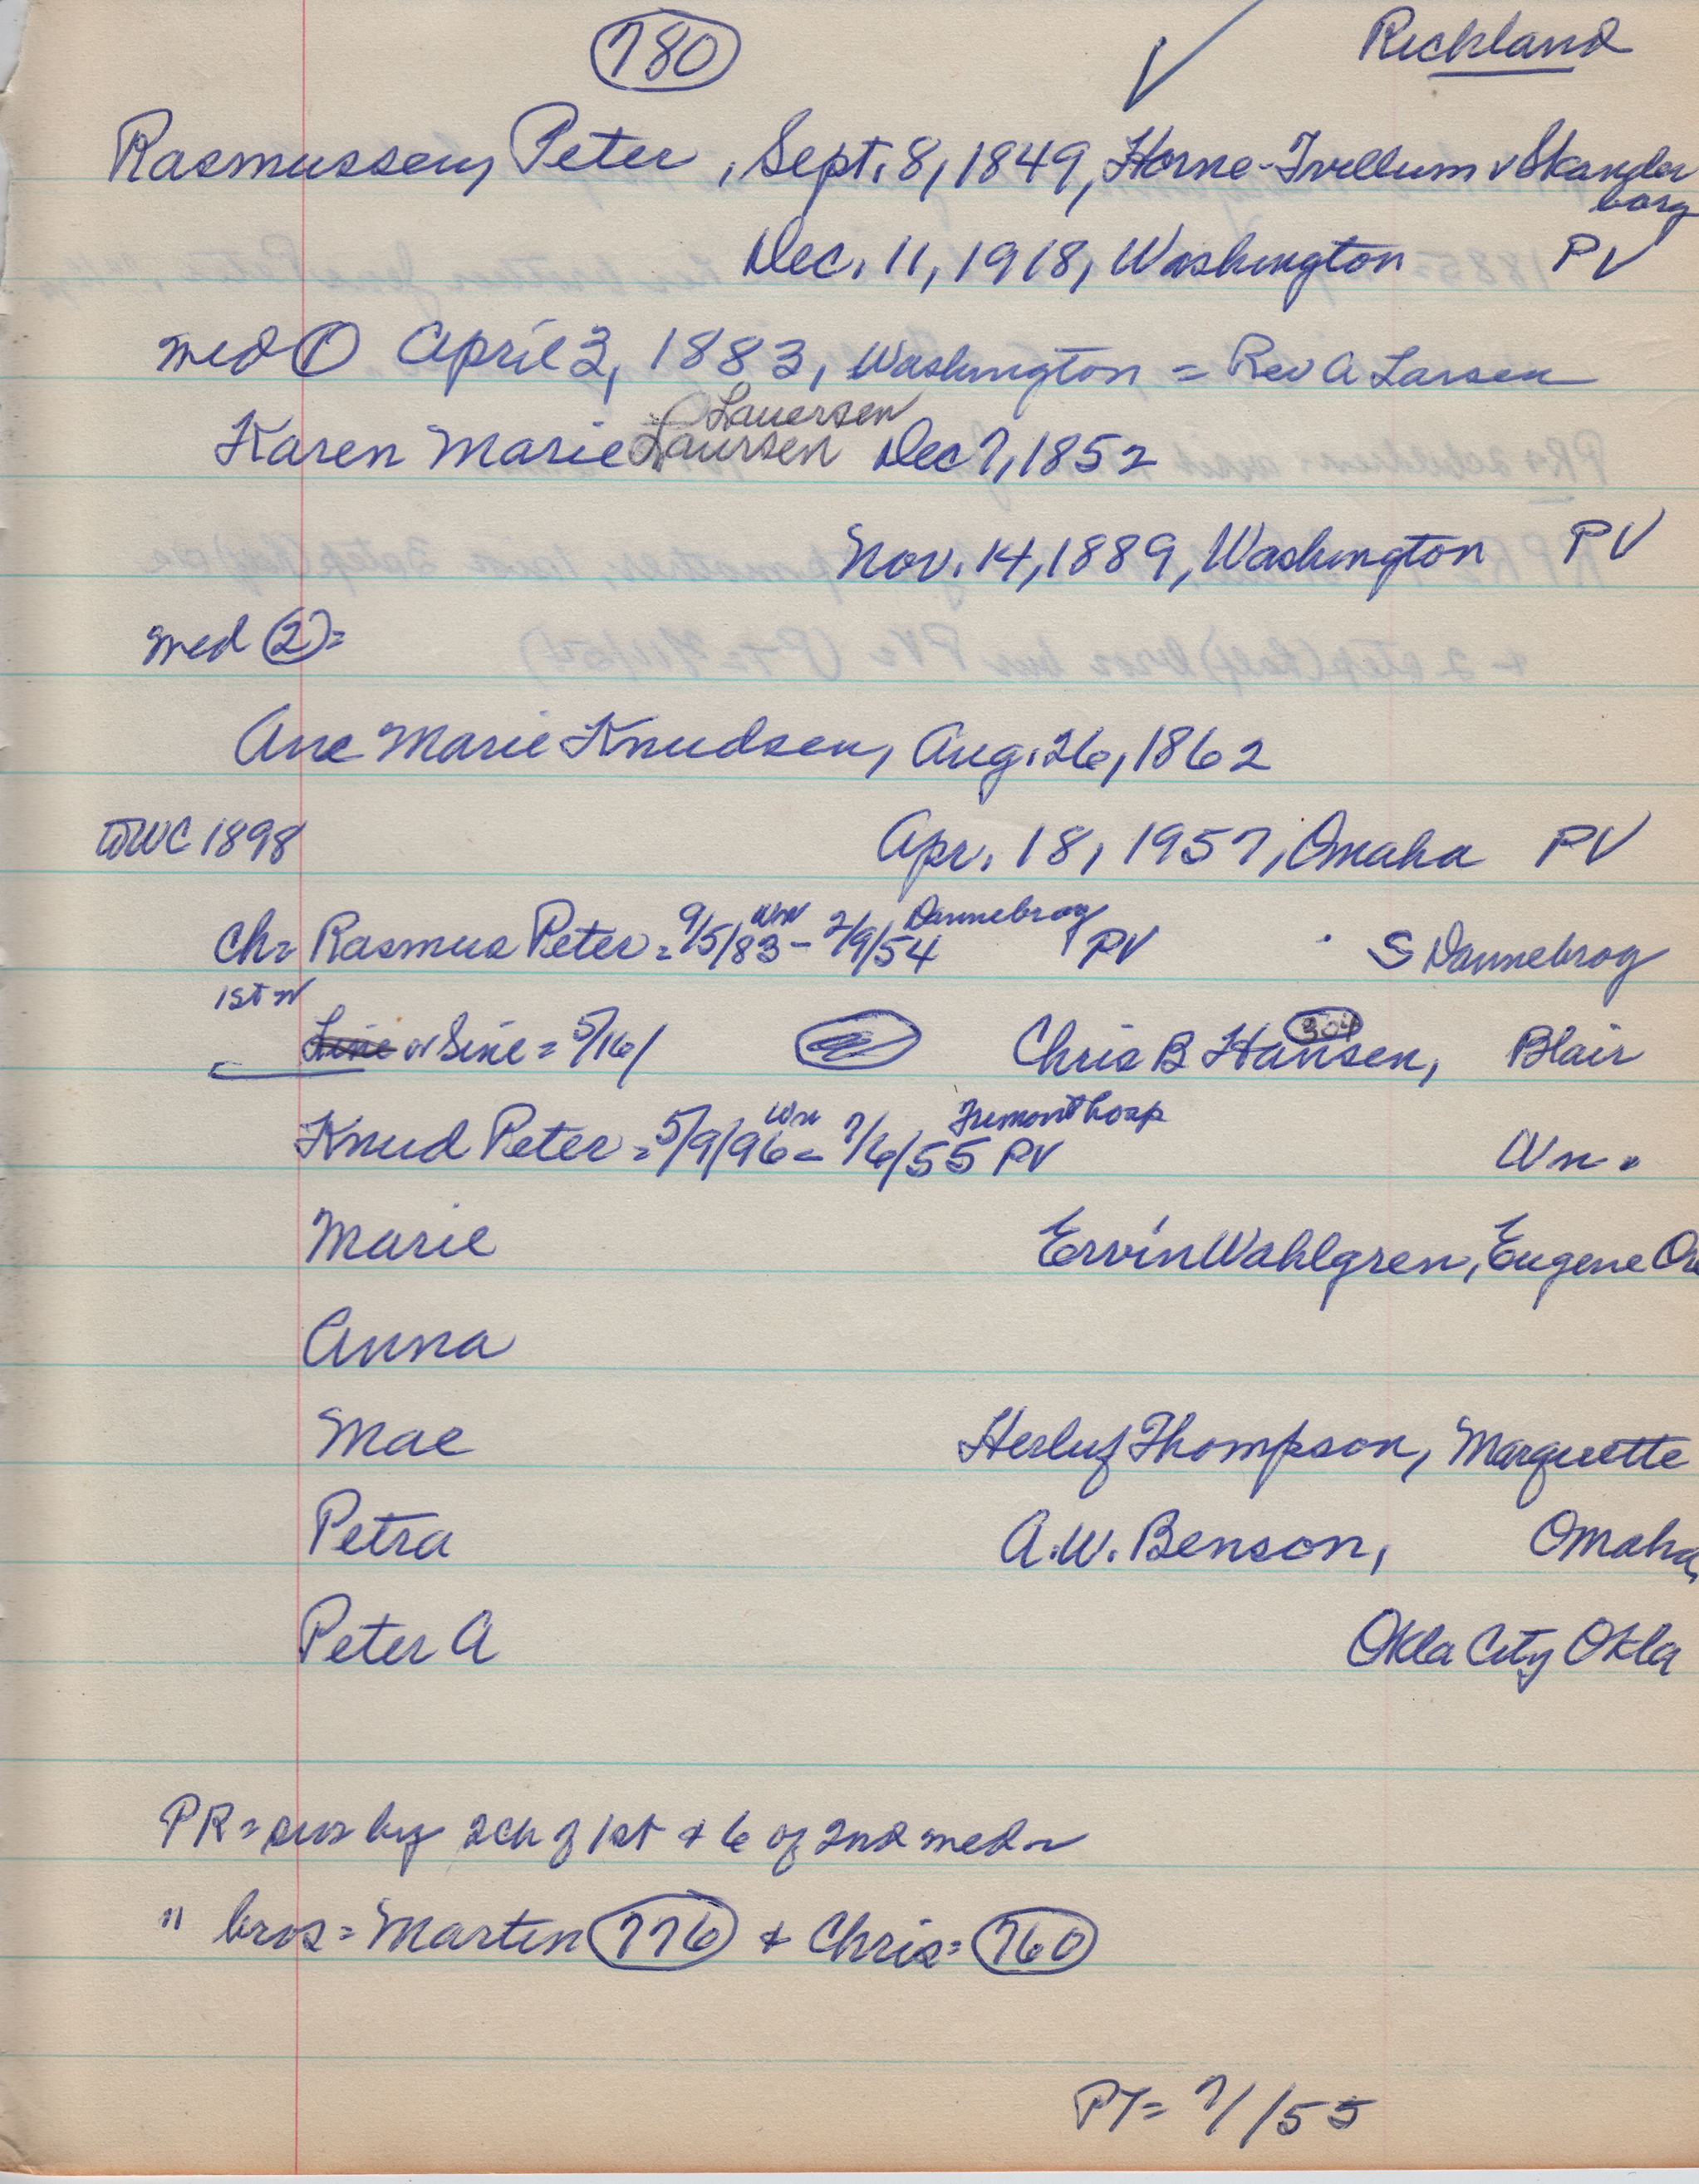 780 Richland
Rasmussen, Peter, Sept. 8, 1849, Horne-Tvillum v Skander
borg
Dec. 11, 1918, Washington PV
med 1 April 3, 1883, Washington = Rev A Larsen
Lauersen
Karen Marie Laursen Dec 7, 1852
Nov. 14, 1889, Washington PV
med 2=
Ane Marie Knudsen, Aug. 26, 1862
WC 1898 Apr. 18, 1957, Omaha PV
Wn Dannebrog
Ch= Rasmus Peter = 9/5/83 - 2/9/54 PV S Dannebrog
1st
Line or Sine = 5/16/ Chris B Hansen, 304 Blair
Wn Fremont Hosp
Knud Peter = 5/9/96 - 7/6/55 PV Wn.
Marie Ervin Wahlgren, Eugene Ore
Anna
Mae Herluf Thompson, Marquette
Petra A.W. Benson, Omaha,
Peter A Okla City Okla
PR = surv by 2 ch of 1st + 6 of 2nd med
" bros = Marten 776 + Chris = 760
PT = 7/ /55